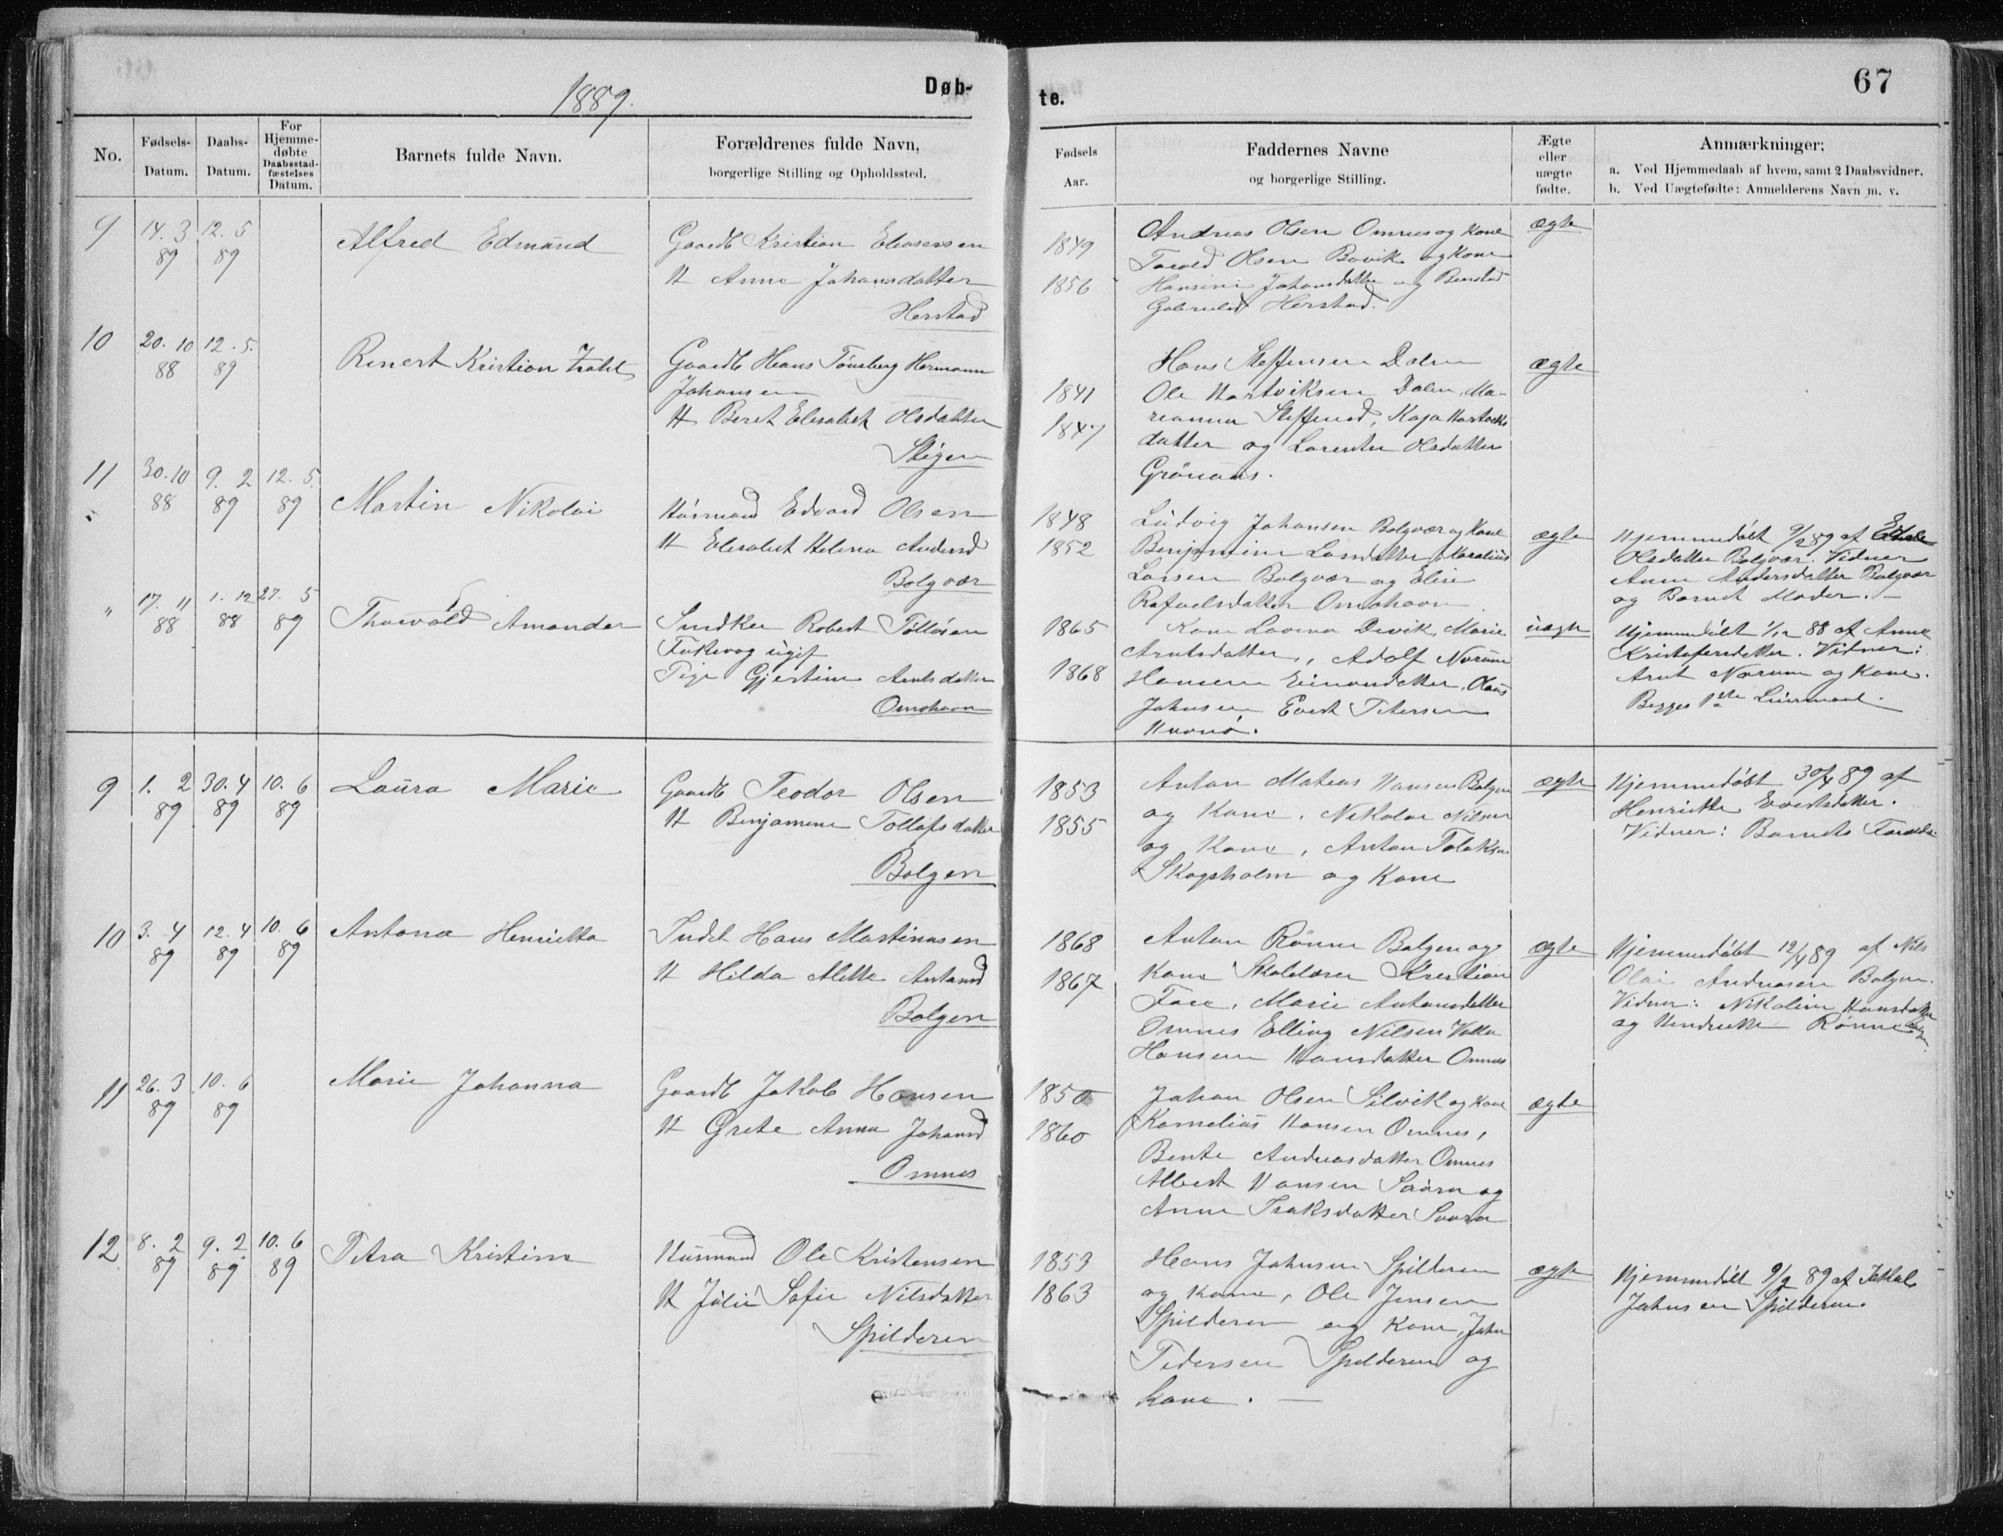 1889.
Døb-
te.
67
No.
Fødsels-
Datum.
Daabs-
Datum.
For
Hjemme-
døbte
Daabsstad-
fæstelses
Datum.
Barnets fulde Navn.
Forældrenes fulde Navn,
borgerlige Stilling og Opholdssted.
Fødsels
Aar.
Faddernes Navne
og borgerlige Stilling.
Ægte
eller
uægte
fødte.
Anmærkninger;
a. Ved Hjemmedaab af hvem, samt 2 Daabsvidner.
b. Ved Uægtefødte: Anmelderens Navn m. v.
9
14. 3
89
12. 5
89
Alfred Edmund
Gaardb Kristian Eliasensen
H Anne Johansdatter
Herstad
1849
1856
Andreas Olsen Omnes og Kone
Olsen Bovik og Kone
Johansdatter og
Herstad.
ægte
10
20. 10
88
12. 5.
89
Renert Kristian Zahl
Gaardb Hans Tønsberg Hermann
Johansen
H Beret Elesabet Olsdatter
Stigen
1841
1847
Hans Steffensen Dalen
Ole Hartviksen Dalen, Ma-
reanna Steffensd, Kaja Hartviks
datter og Lorentse Olsdatter
Grönaas.
ægte
11
30. 10
88
9. 2
89
12. 5.
89
Martin Nikolai
Húsmand Edvard Olsen
H Elesabet Helena Andersd
Bolgvær
1848
1852
Ludvig Johansen Bolgvær og Kone
Benjamine Larsdatter, Karelius
Larsen Bolgvær og Elen
Rafaelsdatter Omshavn
ægte
Hjemmedøbt 9/2 89 af
Olsdatter Bolgvær. Vidner
Anne Andersdatter Bolgvær
og Barnets Moder. —
"
17. 11
88
1. 12
88
27. 5
89
Thorvald Amandar
Snedker Robert Tollösen
Fuskevog ugift
Pige Gjertine Arntsdatter
Omshavn
1865
1868
Kone Lovina Devik, Marie
Arntsdatter, Adolf Norum
Hansine Eimondatter, Klaus
Johnsen Evert Petersen
uægte
Hjemmedöbt 1/12 88 af Anne
Kristofersdatter. Vidner:
Arnt Norum og Kone.
Begges 1ste Leiermaal.
9
1. 2
89
30. 4
89
10. 6
89
Laura Marie
Gaardb Teodor Olsen
H Benjamine Tollofsdatter
Bolgen
1853
1855
Antan Mateas Hansen Bolgen
og Kone, Nikolai Nilsen
og Kone, Antan Tolaksen
Skogsholm og Kone
ægte
Hjemmedöbt 30/4 89 af
Henriette Evertsdatter.
Vidner: Barnets Forældre
10
3. 4
89
12. 4
89
10. 6
89
Antona Henrietta
Inderst Hans Martinusen
H Hilda Mette Antonsd
Bolgen
1868
1867
Antan Rönne Bolgen og
Kone Skolelærer Krestian
Fore, Marie Antonsdatter
Omnes Elling Nilsen
Hansine Hansdatter Omnes
ægte
Hjemmedöbt 12/4 89 af Nils
Olai Andreasen Bolgen.
Vidner: Nikoline Hansdatter
og Hendrikke Rönne
11
26. 3
89
10. 6
89
Marie Johanna
Gaardb Jakob Hansen
H Grete Anna Johansd
Omnes
1850
1860
Johan Olsen Silvik og Kone
Kornelius Hansen Omnes,
Bente Andreasdatter Omnes
Albert Hansen Saura og
Anne Isaksdatter Saura
ægte
12
8. 2
89
9. 2
89
10. 6
89
Petra Kristine
Húsmand Ole Kristensen
H Julie Sofie Nilsdatter
Spilderen
1853
1863
Hans Johnsen Spilderen
og Kone, Ole Jensen
Spilderen og Kone, John
Pedersen Spilderen og
Kone. —
ægte
Hjemmedöbt 9/2 89 af Jakob
Johnsen Spilderen.